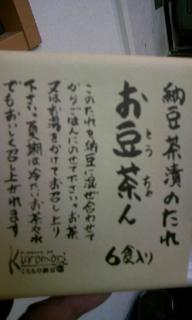 納豆茶漬のたれ
お豆茶ん
とうちゃ
6食入り
このたれを納豆に混ぜ合わせて
からごはんにのせて下さい。お茶
又はお湯をかけてお召し上り
下さい。夏期は冷たいお茶や水
でもおいしく召し上がれます
Kuromori
くろもり納豆